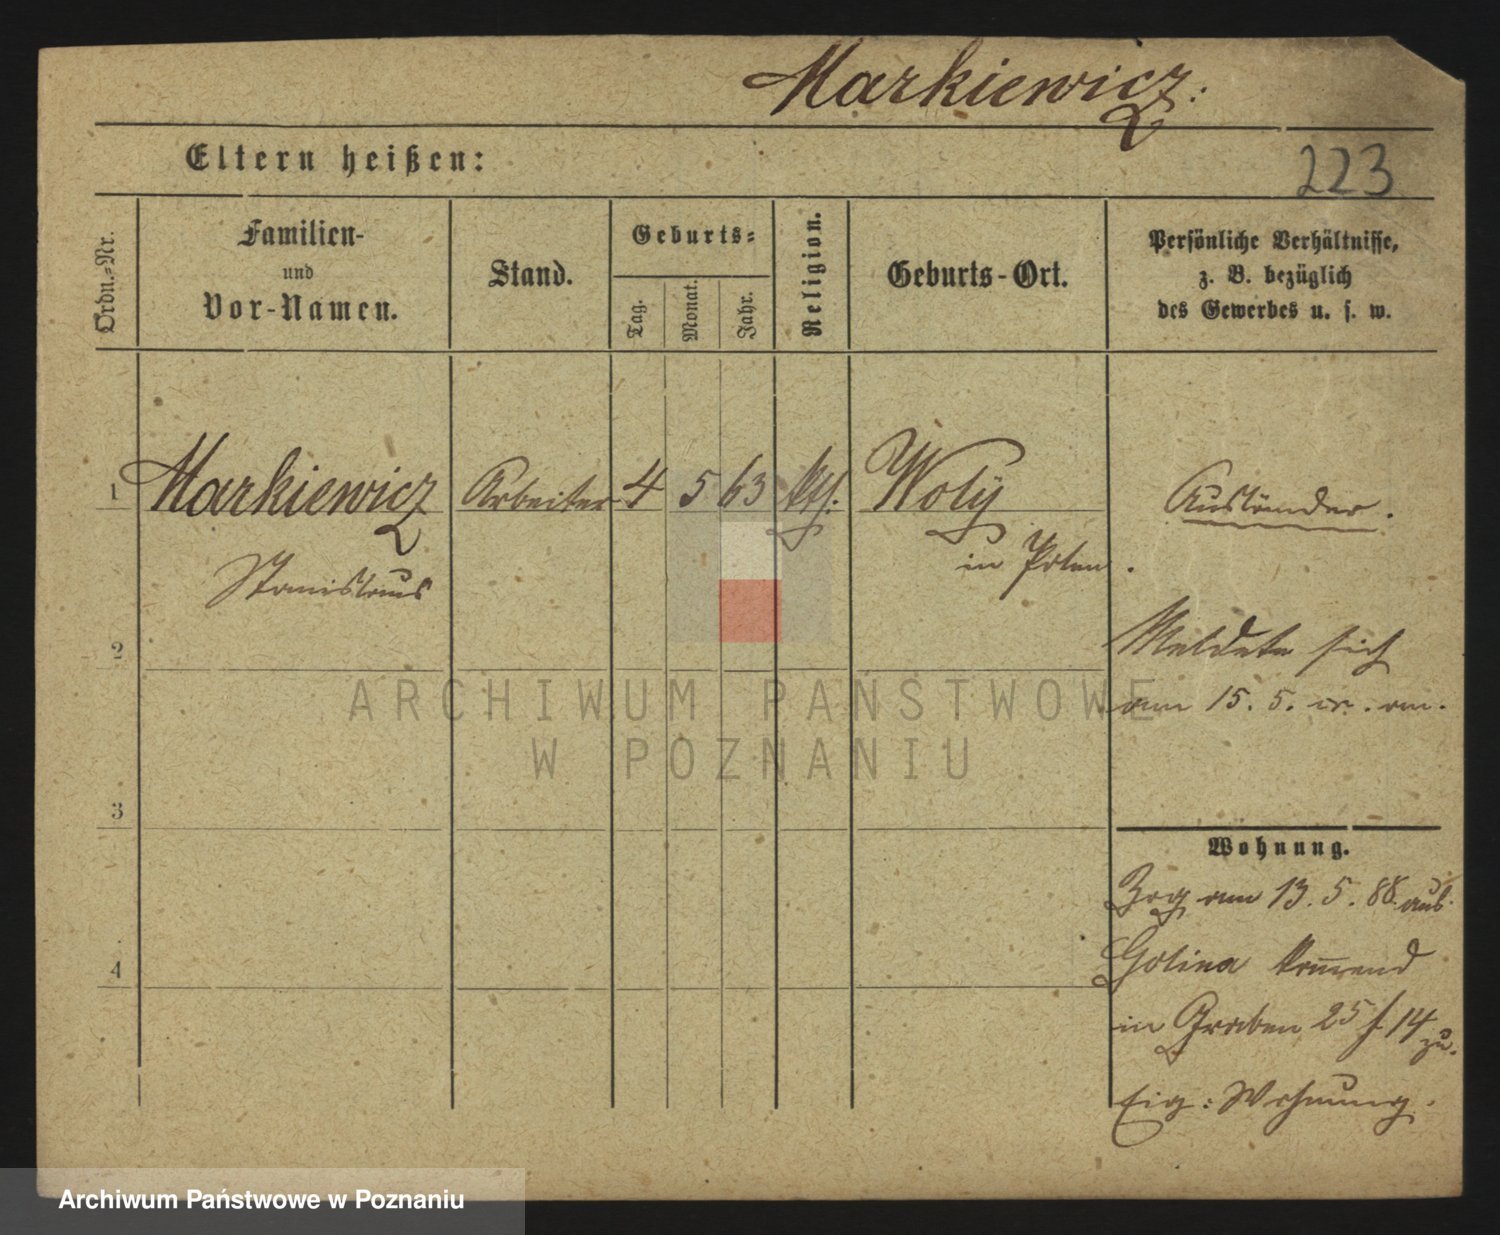 Markiewicz:
Eltern heißen:
223
Ordn.-Nr.
Familien-
und
Vor-Namen.
Stand.
Geburts-
Tag.
Monat.
Jahr.
Religion.
Geburts-Ort.
Persönliche Verhältnisse,
z. B. bezüglich
des Gewerbes u. s. w.
1 Markiewicz Arbeiter 4 5 63 kth: Woly
Stanislaus
in Polen.
Ausländer.
2
Meldete sich
am 15. 5. cr. an.
ARCHIWUM PAŃSTWOWE
W POZNANIU
3
Wohnung.
Zog am 13. 5. 88. aus
Golina kommend
4
in Graben 25 14 zu.
Eig: Wohnung.
Archiwum Państwowe w Poznaniu